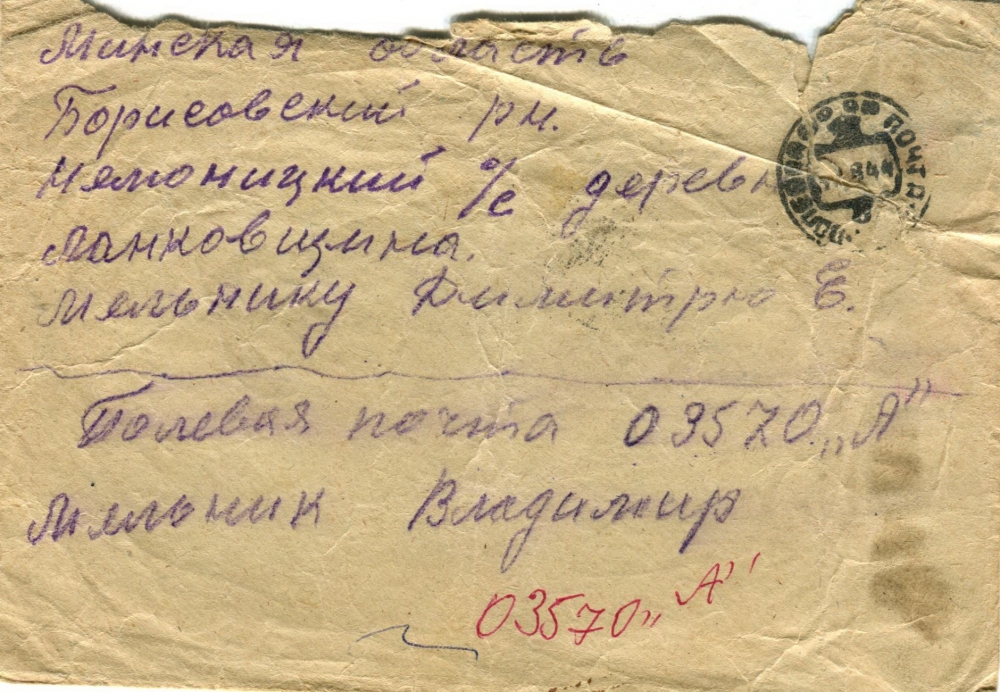 Минская область
Борисовский рн.
Немоницкий с/с деревн
Лонковщина.
Мельнику Димитрю Е.
Полевая почта 03570 „А"
Мельник Владимир
03570 „А"
ПОЛЕВАЯ ПОЧТА
44